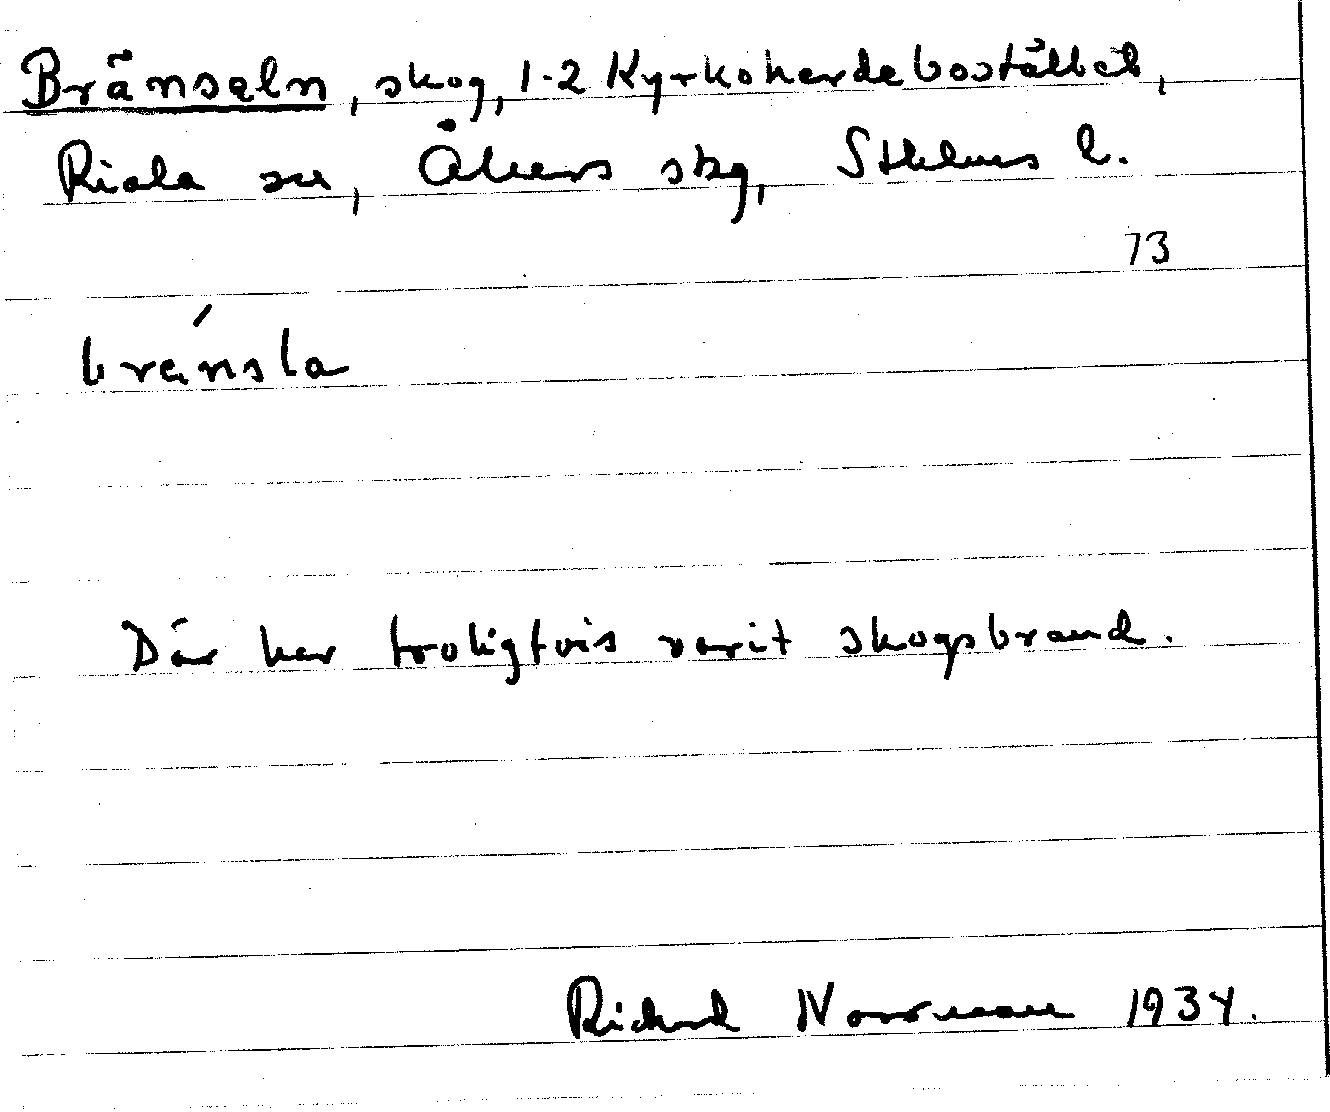 Bränseln, skog, 1-2 Kyrkoherdebostället,
Riala sn, Åkers skg, Sthlms l.
73
brä́nsla
Där har troligtvis varit skogsbrand.
Richard Norrman 1934.